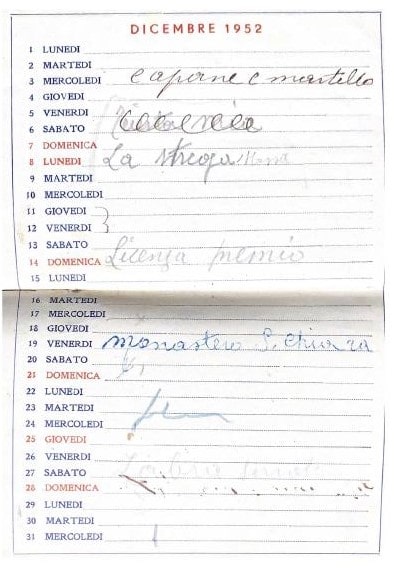 DICEMBRE 1952
1 LUNEDI
2 MARTEDI
3 MERCOLEDI capone e martello
4 GIOVEDI
5 VENERDI
6 SABATO
7 DOMENICA
8 LUNEDI La strega
9 MARTEDI
10 MERCOLEDI
11 GIOVEDI
12 VENERDI
13 SABATO
14 DOMENICA Licenza premio
15 LUNEDI
16 MARTEDI
17 MERCOLEDI
18 GIOVEDI
19 VENERDI Monastero S. Chiara
20 SABATO
21 DOMENICA
22 LUNEDI
23 MARTEDI
24 MERCOLEDI
25 GIOVEDI
26 VENERDI
27 SABATO
28 DOMENICA
29 LUNEDI
30 MARTEDI
31 MERCOLEDI